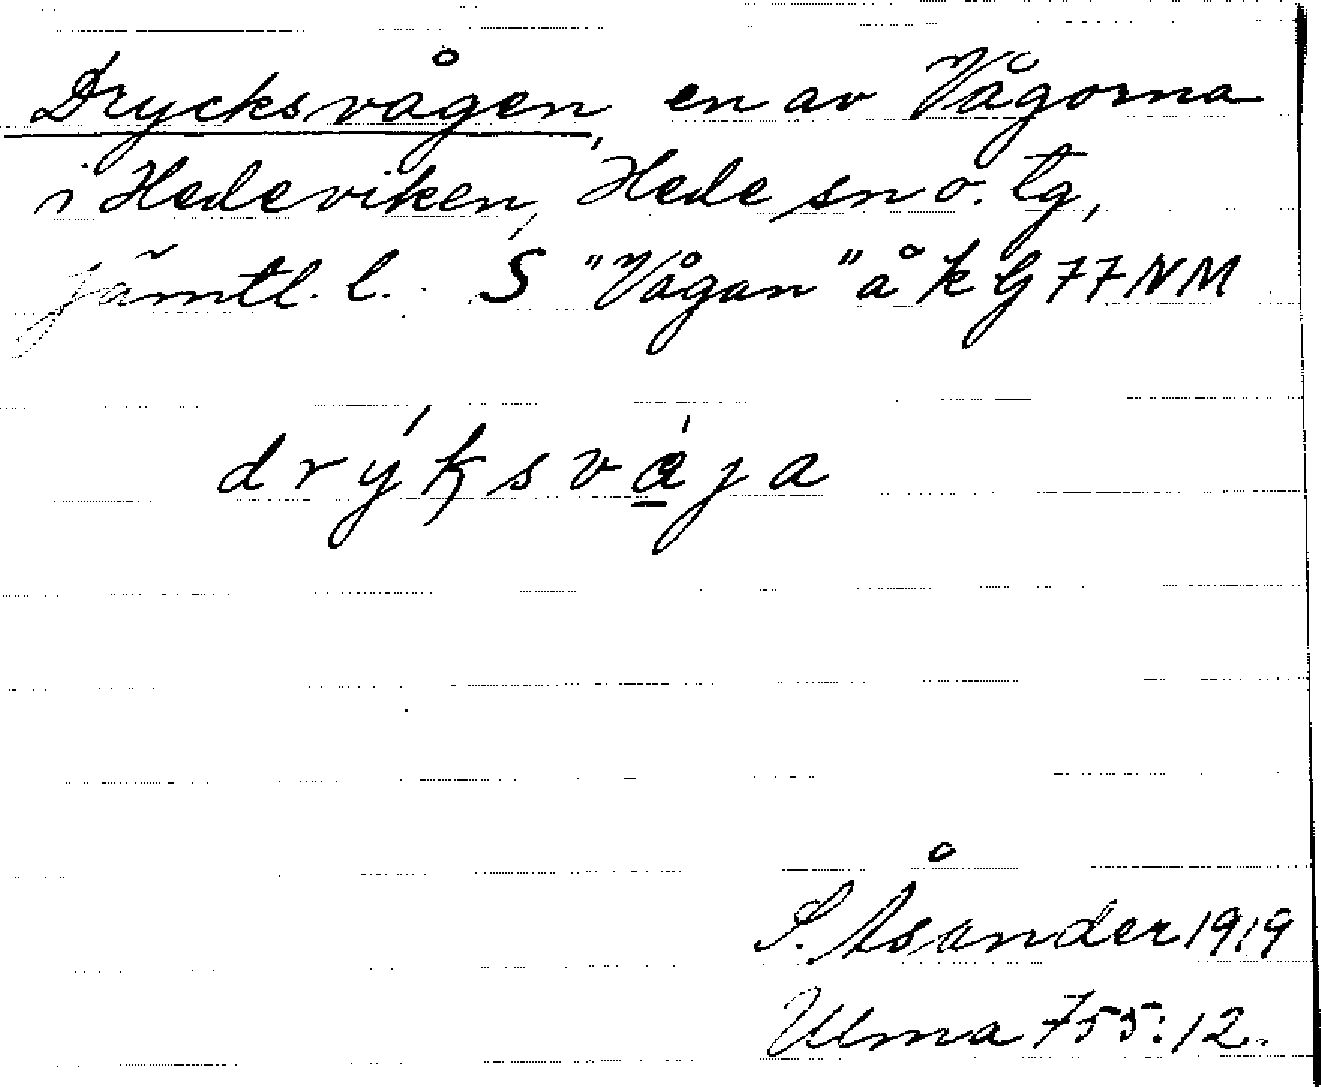 Drycksvågen, en av Vågorna
i Hedeviken, Hede sn o. tg,
Jämtl. l. S "Vågan" å k G 77 NM
drýksvája
S. Åsander 1919
Ulma 755:12.